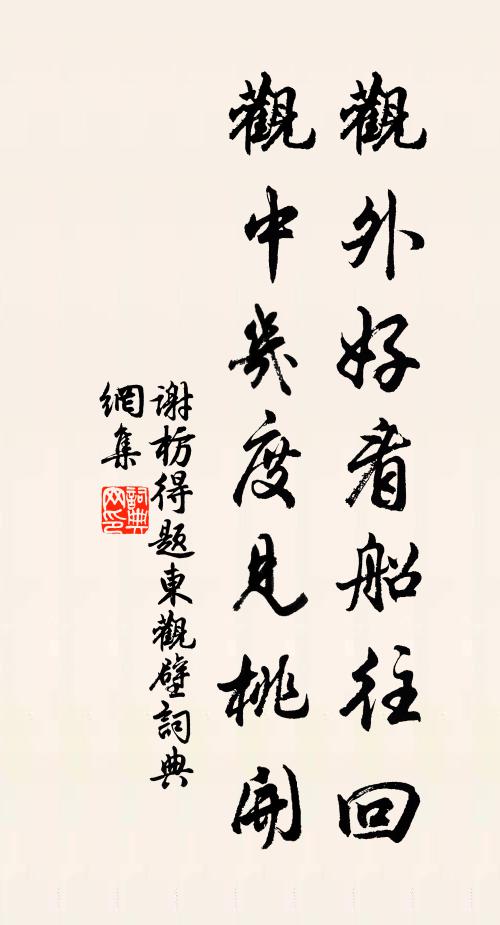 觀外好看船往回
觀中幾度見桃開
谢枋得题東觀壁詞典
網集
詞典网印